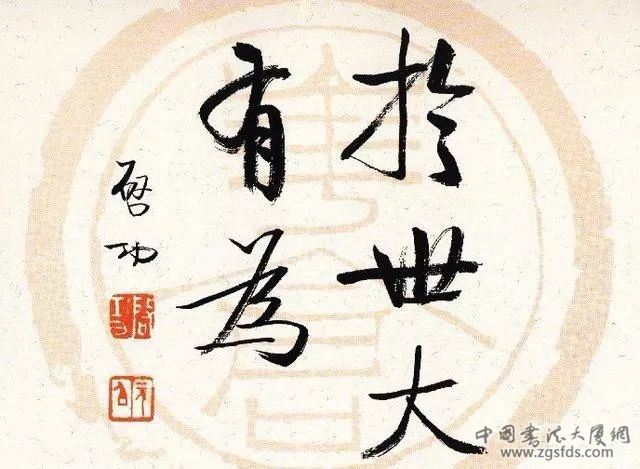 於世大
有為
启功
中国书法大厦網
www.zgsfds.com